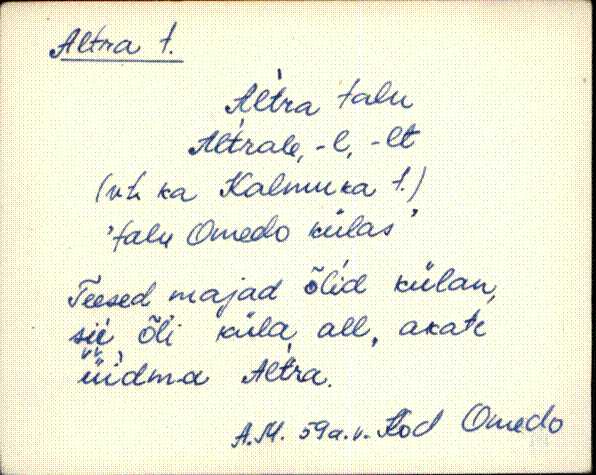 Altra t.
Al't́ra talu
Al't́rale, -l, -lt
(vt ka Kalmuka t.)
'talu Omedo külas'
Teesed majad õĺid külan,
sii õli küla all, akati
üidma Al't́ra.
A.M. 59a.v. Kod Omedo